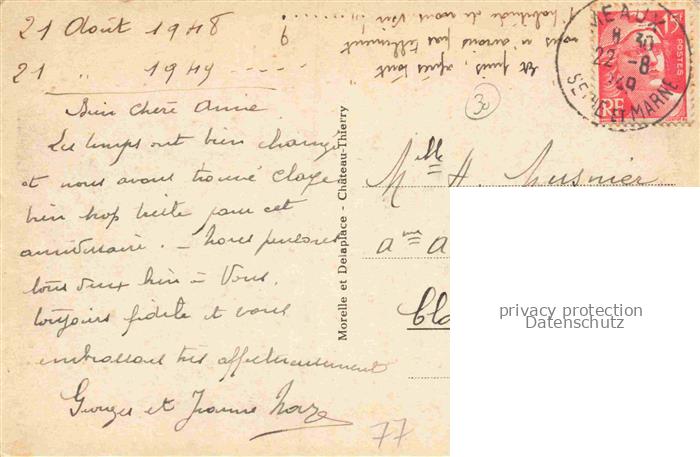 21 Août 1948
21 " 1949 - - - -
Bien chère Amie
Les temps ont bien changé
et nous avons trouvé Claye
bien trop triste pour cet
anniversaire. - nous pensons
tous deux bien à Vous.
toujours fidèle et vous
embrassons très affectueusement
Georges et Jeanne
77
et puis, après tout
nous n'avons pas tellement
l'habitude de vous voir
?
Morelle et Delaplace - Château-Thierry
30
Mlle H. Musnier
MEAUX
8 30
22 -8
49
SEINE ET MARNE
15F
POSTES
RF
privacy protection
Datenschutz